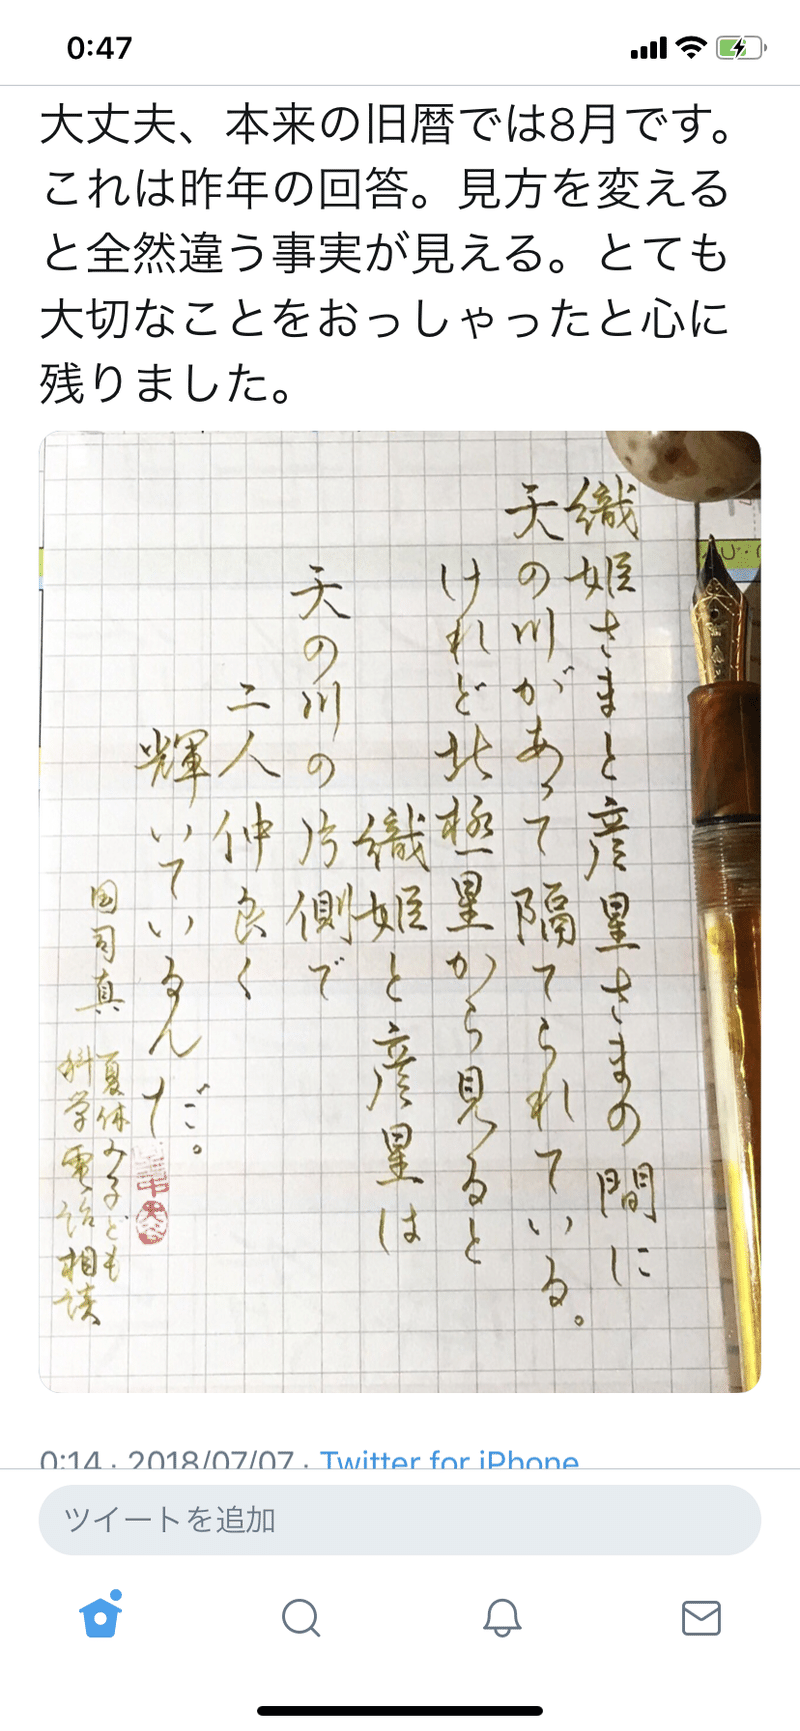 0:47
大丈夫、本来の旧暦では8月です。
これは昨年の回答。見方を変える
と全然違う事実が見える。とても
大切なことをおっしゃったと心に
残りました。
織姫さまと彦星さまの間に
天の川があって隔てられている。
けれど北極星から見ると
織姫と彦星は
天の川の片側で
二人仲良く
輝いているんだ。
国司真
夏休み子ども
科学電話相談
0:14 · 2018/07/07 · Twitter for iPhone
ツイートを追加